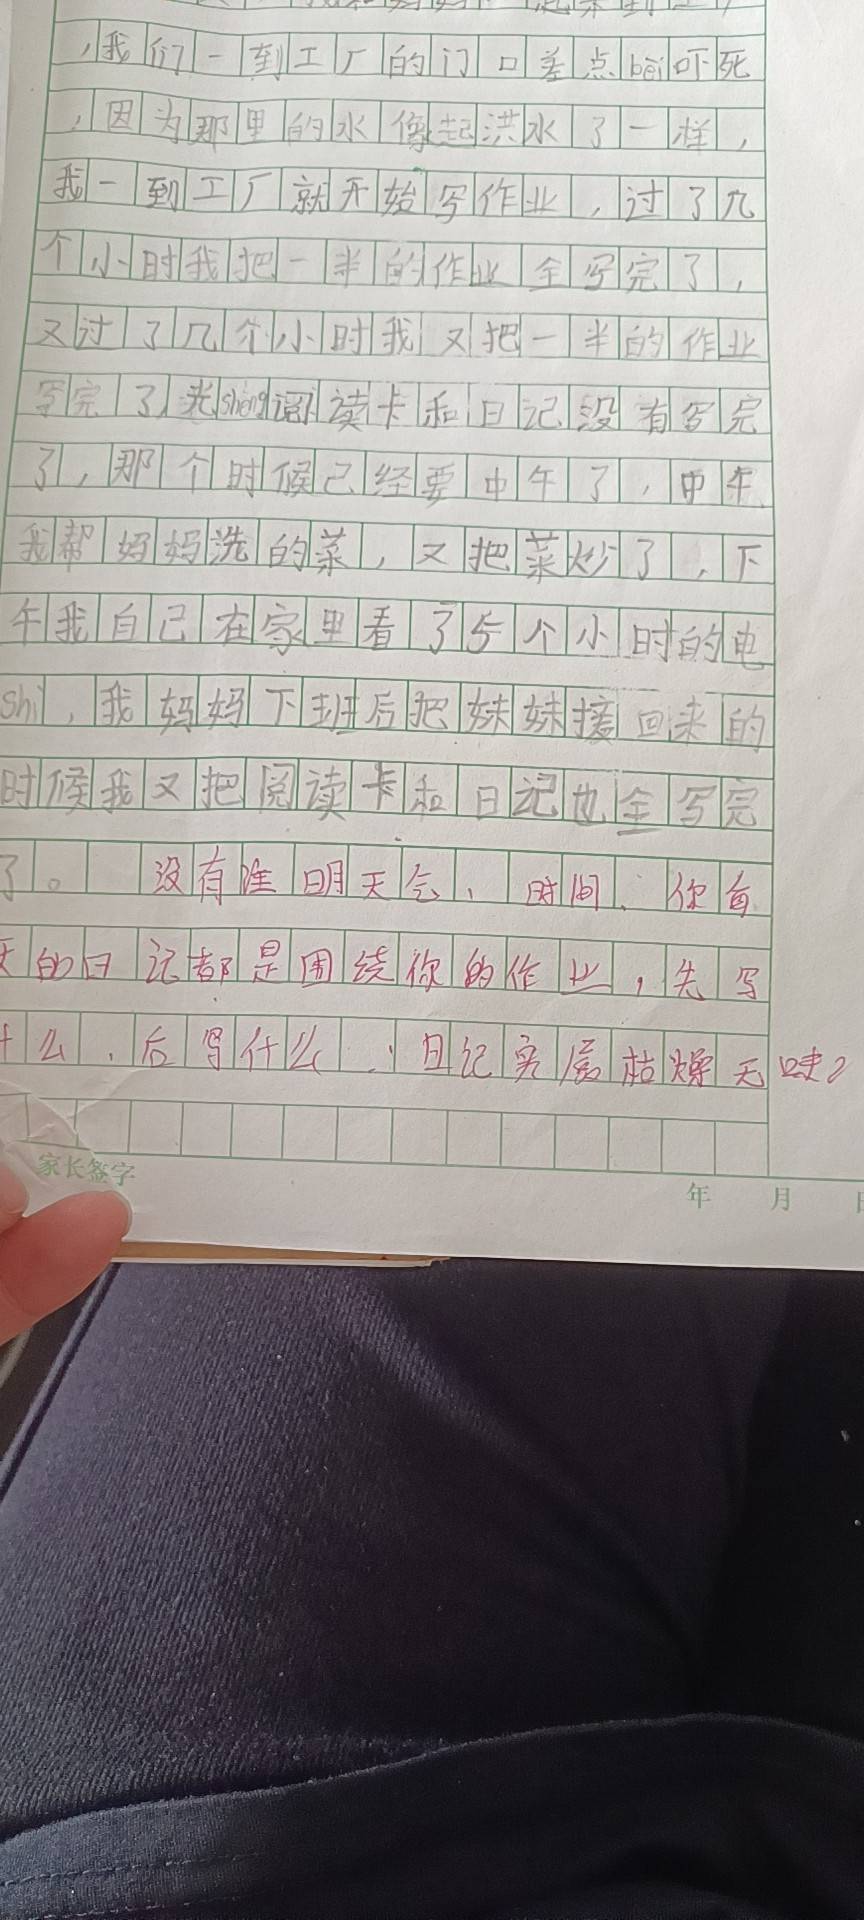 ,我们一到工厂的门口差点bèi吓死
,因为那里的水像起洪水了一样,
我一到工厂就开始写作业,过了几
个小时我把一半的作业全写完了,
又过了几个小时我又把一半的作业
写完了,光shèng阅读卡和日记没有写完
了,那个时候已经要中午了,中午
我帮妈妈洗的菜,又把菜炒了,下
午我自己在家里看了5个小时的电
shì,我妈妈下班后把妹妹接回来的
时候我又把阅读卡和日记也全写完
了。 没有准明天气、时间、你每
天的日记都是围绕你的作业,先写
什么,后写什么,日记实属枯燥无味
家长签字
年 月 日